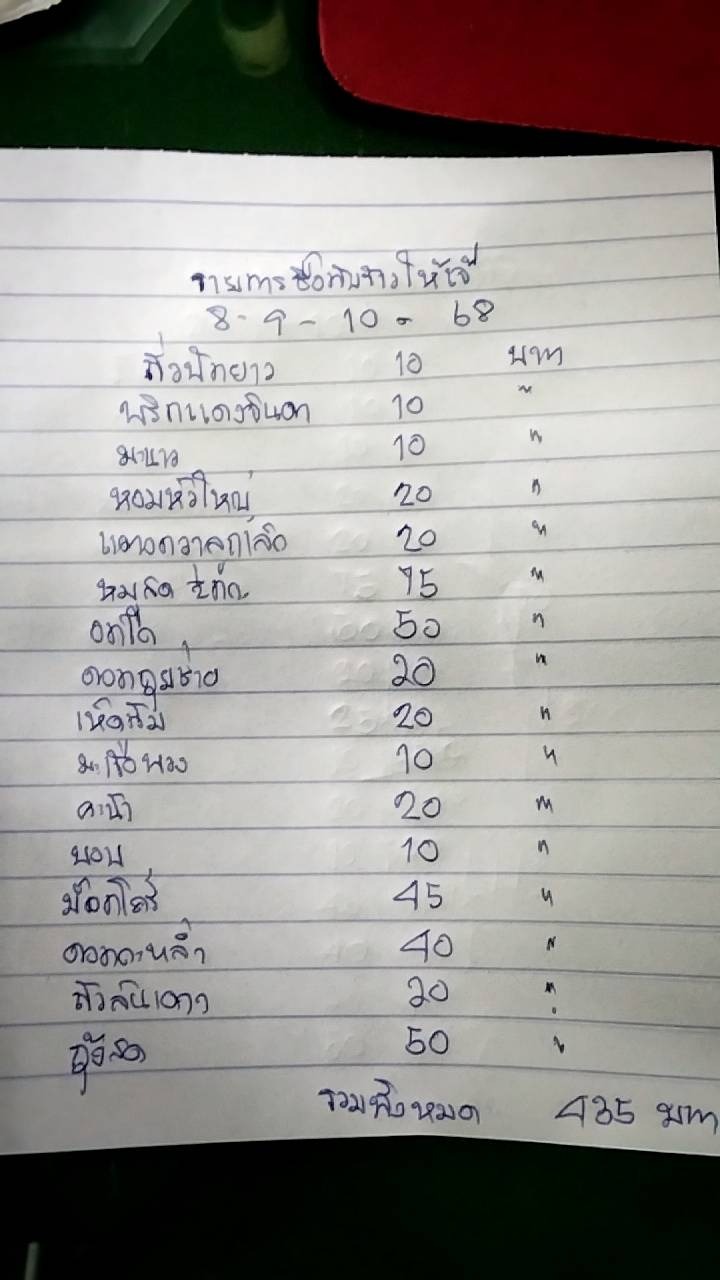 รายการซื้อกับข้าวให้เจ๊
8-9-10-68
ถั่วฝักยาว 10 บาท
พริกแดงจินดา 10 "
มะนาว 10 "
หอมหัวใหญ่ 20 "
แตงกวาลูกเล็ก 20 "
หมูสด 75 "
อกไก่ 50 "
ดอกกุยช่าย 20 "
เห็ดส้ม 20 "
มะเขือพวง 10 "
คะน้า 20 "
บวบ 10 "
บ๊อกโคลี่ 45 "
ดอกกะหล่ำ 40 "
ถั่วลันเตา 20 "
กุ้งสด 50 "
รวมทั้งหมด 435 บาท